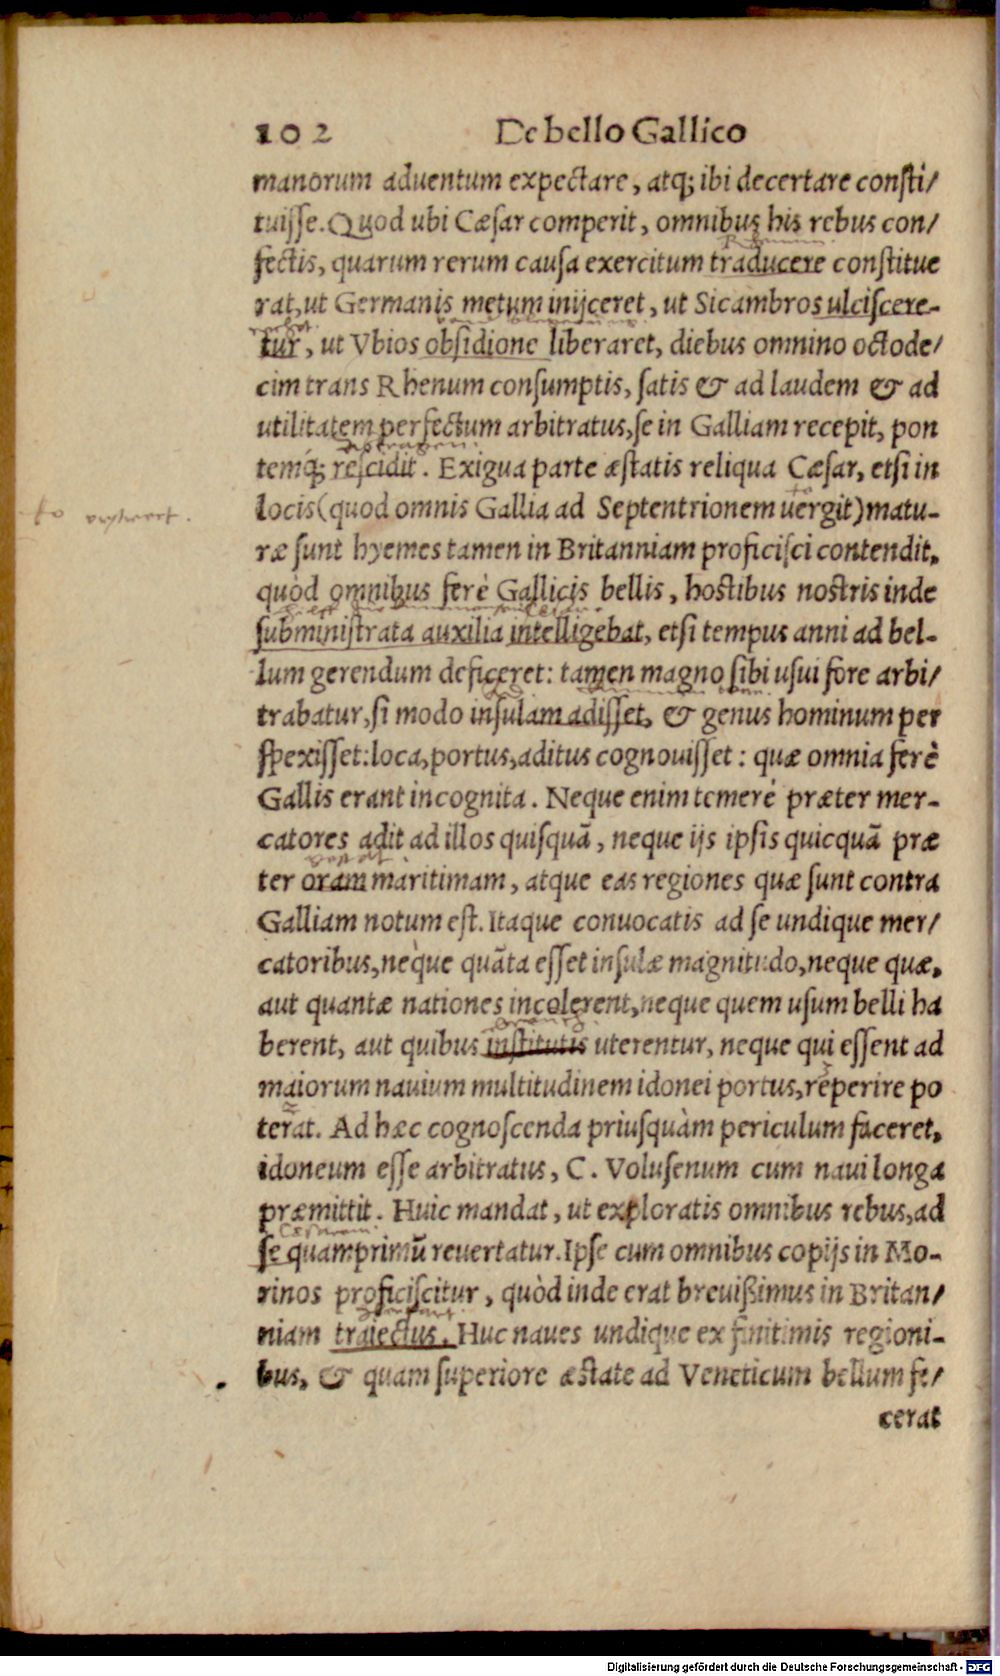 102 De bello Gallico
manorum aduentum expectare, atq; ibi decertare consti/
tuisse. Quod ubi Cæsar comperit, omnibus his rebus con/
fectis, quarum rerum causa exercitum traducere constitue
rat, ut Germanis metum inijceret, ut Sicambros ulciscere-
tur, ut Vbios obsidione liberaret, diebus omnino octode/
cim trans Rhenum consumptis, satis & ad laudem & ad
utilitatem perfectum arbitratus, se in Galliam recepit, pon
temq; rescidit. Exigua parte æstatis reliqua Cæsar, etsi in
locis (quod omnis Gallia ad Septentrionem uergit) matu-
ræ sunt hyemes tamen in Britanniam proficisci contendit,
quòd omnibus ferè Gallicis bellis, hostibus nostris inde
subministrata auxilia intelligebat, etsi tempus anni ad bel-
lum gerendum deficeret: tamen magno sibi usui fore arbi/
trabatur, si modo insulam adisset, & genus hominum per
spexisset: loca, portus, aditus cognouisset: quæ omnia ferè
Gallis erant incognita. Neque enim temerè præter mer-
catores adit ad illos quisquā, neque ijs ipsis quicquā præ
ter oram maritimam, atque eas regiones quæ sunt contra
Galliam notum est. Itaque conuocatis ad se undique mer/
catoribus, neque quāta esset insulæ magnitudo, neque quæ,
aut quantæ nationes incolerent, neque quem usum belli ha
berent, aut quibus institutis uterentur, neque qui essent ad
maiorum nauium multitudinem idonei portus, reperire po
terat. Ad hæc cognoscenda priusquàm periculum faceret,
idoneum esse arbitratus, C. Volusenum cum naui longa
præmittit. Huic mandat, ut exploratis omnibus rebus, ad
se quamprimū reuertatur. Ipse cum omnibus copijs in Mo-
rinos proficiscitur, quòd inde erat breuißimus in Britan/
niam traiectus. Huc naues undique ex finitimis regioni-
bus, & quam superiore æstate ad Veneticum bellum fe/
cerat
Digitalisierung gefördert durch die Deutsche Forschungsgemeinschaft - DFG